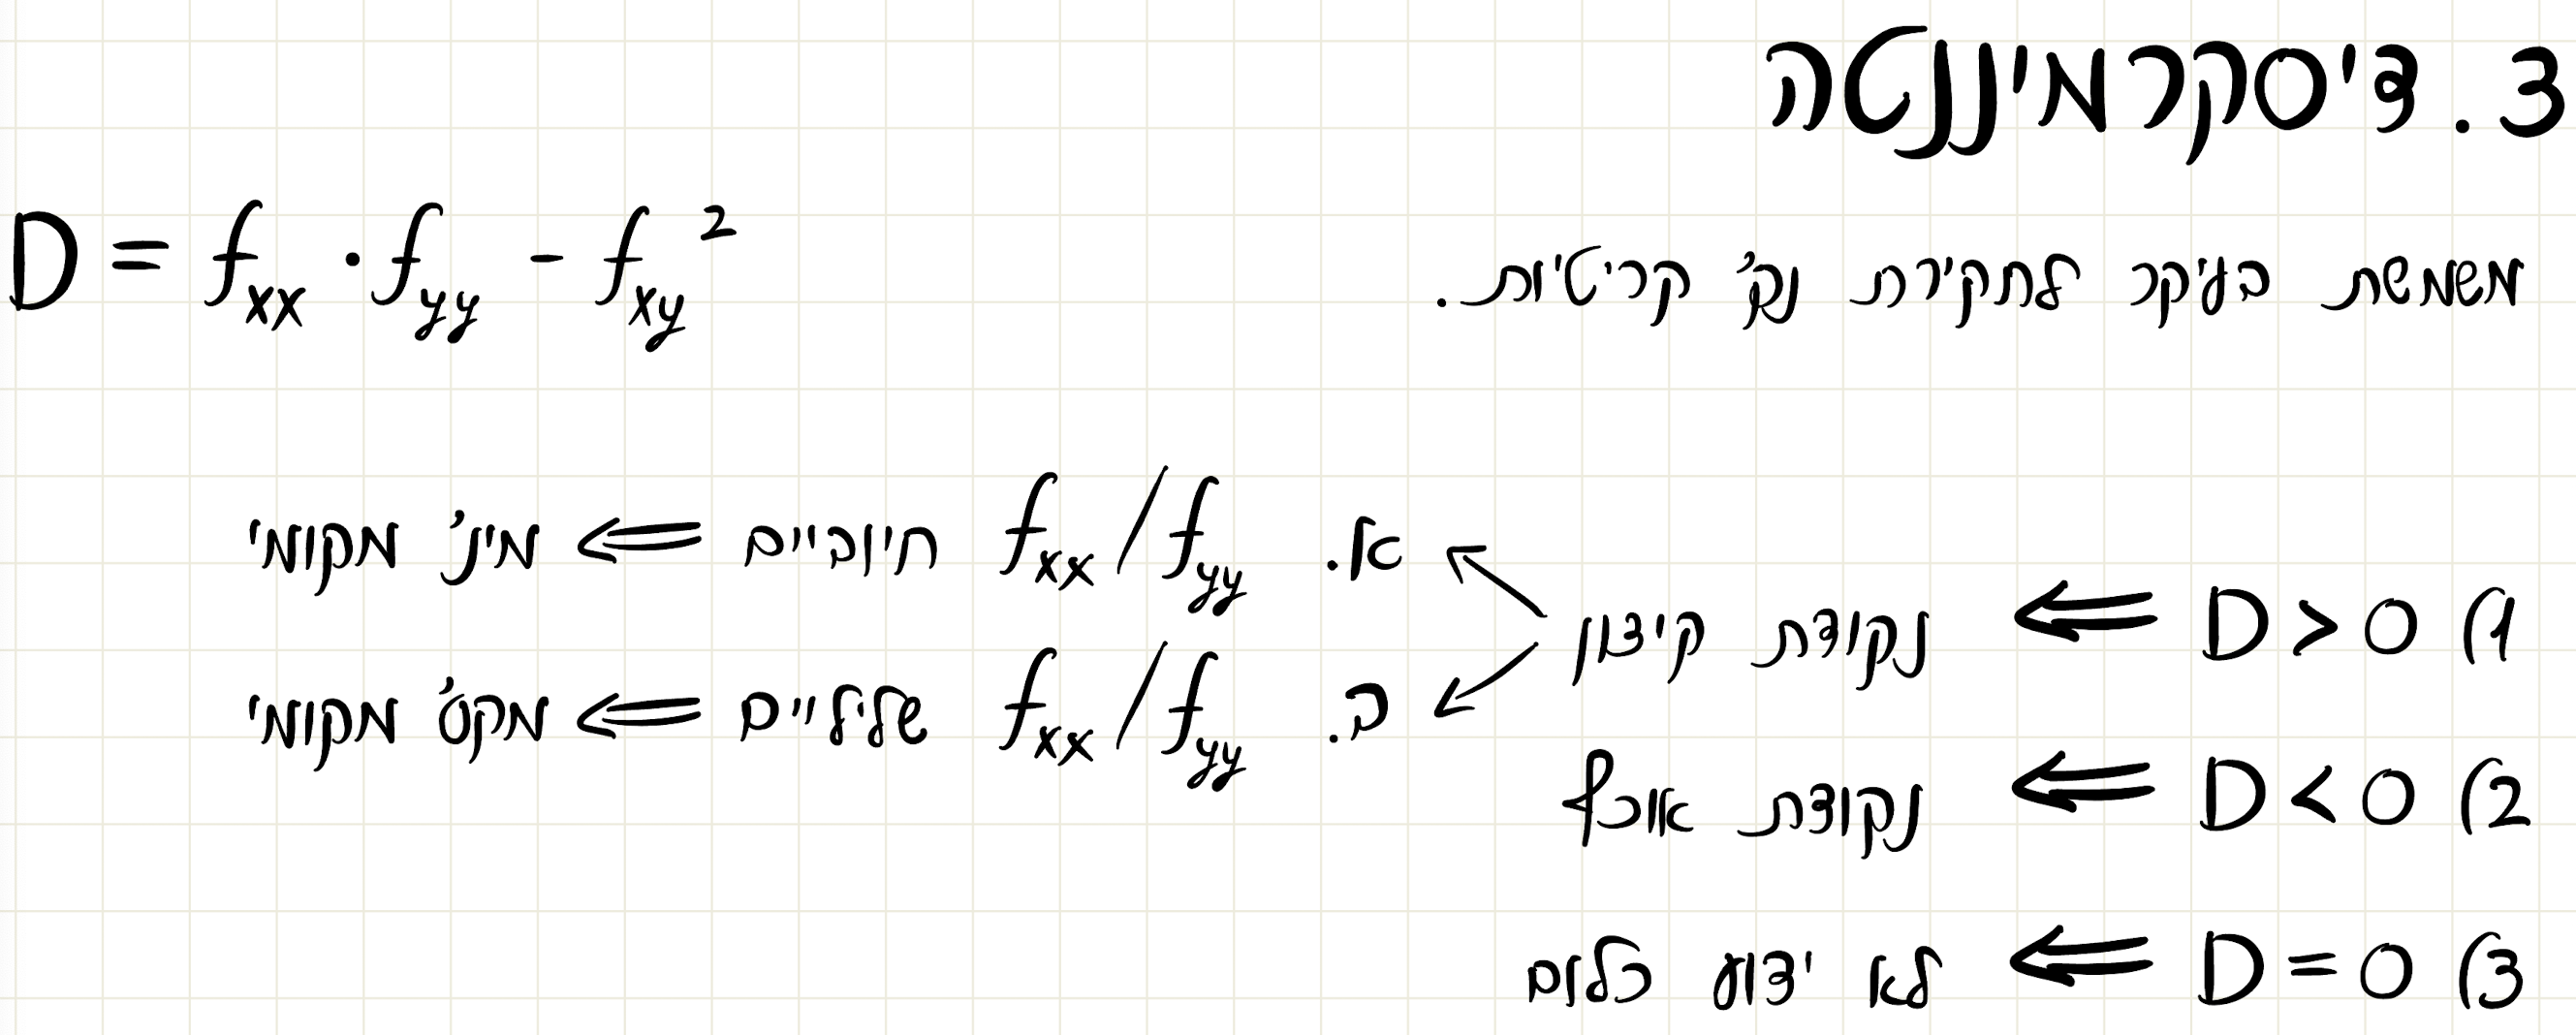 3. דיסקרמיננטה
משמשת בעיקר לחקירת נק' קריטיות.
D = fxx · fyy - fxy²
1) D > 0 ⇐ נקודת קיצון
א. fxx / fyy חיוביים ⇐ מינ' מקומי
ב. fxx / fyy שליליים ⇐ מקס' מקומי
2) D < 0 ⇐ נקודת אוכף
3) D = 0 ⇐ לא ידוע כלום